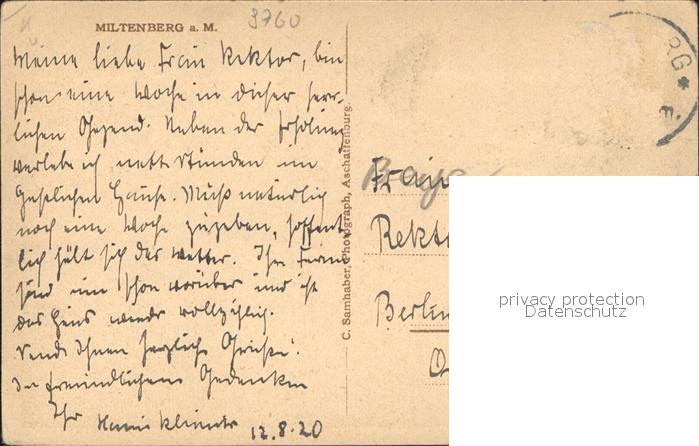 8760
MILTENBERG a. M.
Meine liebe Frau Rektor, bin
schon eine Woche in dieser herr-
lichen Gegend. Neben der Erholung
verlebe ich nette Stunden im
Hause. Muß natürlich
noch eine Woche zugeben, hoffent-
lich hält sich das Wetter. Ihre Ferien
sind nun schon vorüber und ist
das Haus wieder vollzählig.
Sende Ihnen herzliche Grüße.
In freundlichem Gedenken
Ihr
12.8.20
C. Samhaber, Photograph, Aschaffenburg.
RG *
Frau
Rekto
Berlin
privacy protection
Datenschutz